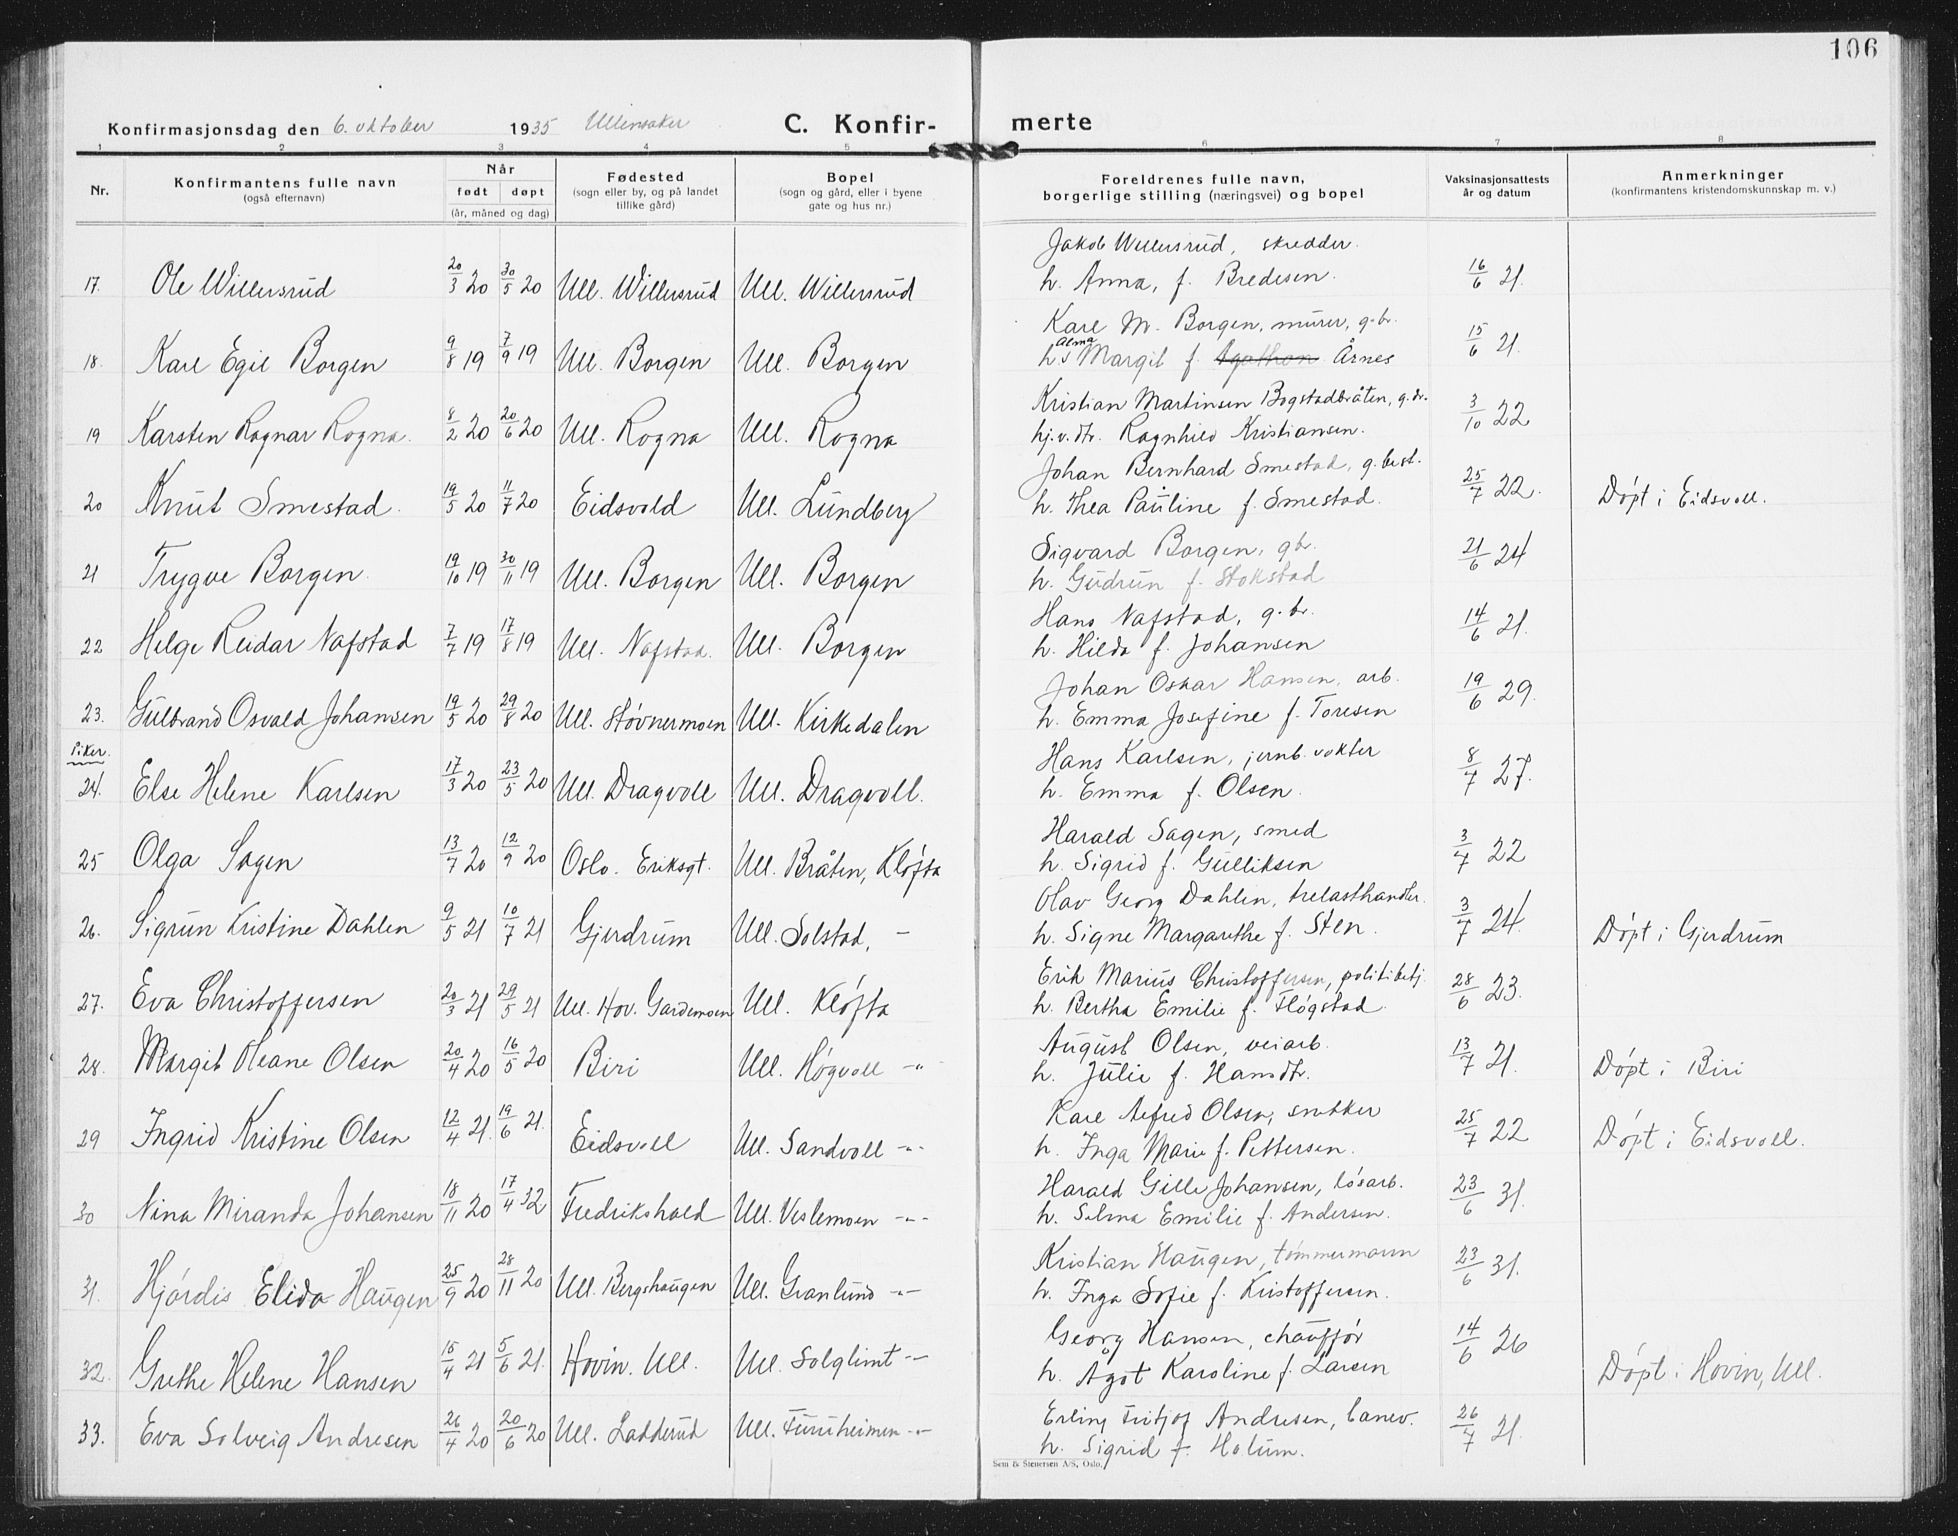 106
Konfirmasjonsdag den 6. oktober 1935 Ullensaker C. Konfir- merte
1 2 3 4 5 6 7 8
Nr. Konfirmantens fulle navn (også efternavn) Når født døpt (år, måned og dag) Fødested (sogn eller by, og på landet tillike gård) Bopel (sogn og gård, eller i byene gate og hus nr.) Foreldrenes fulle navn, borgerlige stilling (næringsvei) og bopel Vaksinasjonsattests år og datum Anmerkninger (konfirmantens kristendomskunnskap m. v.)
Jakob Willersrud, skredder.
17. Ole Willersrud 20/3 20 30/5 20 Ull. Willersrud Ull. Willersrud h. Anna, f. Bredesen. 16/6 21.
Karl M. Borgen, murer, g.br.
18. Karl Egil Borgen 9/8 19 7/9 19 Ull. Borgen Ull. Borgen h. Alma Margit f. Årnes 15/6 21.
Kristian Martinsen Bogstadbråten, g.br.
19 Karsten Ragnar Rogna. 8/2 20 20/6 20 Ull. Rogna Ull. Rogna hj.v.dtr. Ragnhild Kristiansen. 3/10 22
Johan Bernhard Smestad, g.best.
20 Knut Smestad. 19/5 20 11/7 20 Eidsvold Ull. Lundberg h. Thea Pauline f. Smestad. 25/7 22. Døpt i Eidsvoll.
Sigvard Borgen, gbr.
21 Trygve Borgen. 19/10 19 30/11 19 Ull. Borgen Ull. Borgen h. Gudrun f. Stokstad 21/6 24
Hans Nafstad, g.br.
22 Helge Reidar Nafstad 7/7 19 17/8 19 Ull. Nafstad. Ull. Borgen h. Hilda f. Johansen 14/6 21.
Johan Oskar Hansen, arb.
23. Gulbrand Osvald Johansen 19/5 20 29/8 20 Ull. Støvnermoen Ull. Kirkedalen h. Emma Josefine f. Toresen 19/6 29.
Piker.
Hans Karlsen, jernb.vokter
24. Else Helene Karlsen 17/3 20 23/5 20 Ull. Dragvoll Ull. Dragvoll. h. Emma f. Olsen. 8/7 27.
Harald Sagen, smed
25 Olga Sagen 13/7 20 12/9 20 Oslo. Eriksgt. Ull. Bråten, Kløfta h. Sigrid f. Gulliksen 3/7 22
Olav Georg Dahlen, trelasthandler.
26. Sigrun Kristine Dahlen 9/5 21 10/7 21 Gjerdrum Ull. Solstad, - h. Signe Margarethe f. Sten. 3/7 24. Døpt i Gjerdrum
Erik Marius Christoffersen, politibetj.
27. Eva Christoffersen 20/3 21 29/5 21 Ull. Hov. Gardemoen Ull. Kløfta h. Bertha Emilie f. Fløgstad. 28/6 23.
August Olsen, veiarb.
28. Margit Oleane Olsen 20/4 20 16/5 20 Biri Ull. Høgvoll -"- h. Julie f. Hansdtr. 13/7 21. Døpt i Biri
Karl Alfred Olsen, snekker
29 Ingrid Kristine Olsen 12/4 21. 19/6 21. Eidsvoll Ull. Sandvoll -"- h. Inga Marie f. Pettersen. 25/7 22 Døpt i Eidsvoll.
Harald Gille Johansen, løsarb.
30 Nina Miranda Johansen 18/11 20 17/4 32 Fredrikshald Ull. Veslemoen -"- h. Selma Emilie f. Andersen. 23/6 31.
Kristian Haugen, tømmermann
31. Hjørdis Elida Haugen 25/9 20 28/11 20 Ull. Bergshaugen Ull. Granlund -"- h. Inga Sofie f. Kristoffersen. 23/6 31.
Georg Hansen, chauffør
32. Grethe Helene Hansen 15/4 21 5/6 21. Hovin. Ull. Ull. Solglimt -"- h. Agot Karoline f. Larsen 14/6 26 Døpt i Hovin, Ull.
Erling Fritjof Andresen, banev.
33. Eva Solveig Andresen 26/4 20 20/6 20 Ull. Ladderud Ull. Furuheimen -"- h. Sigrid f. Holum. 26/7 21.
Sem & Stenersen A/S, Oslo.